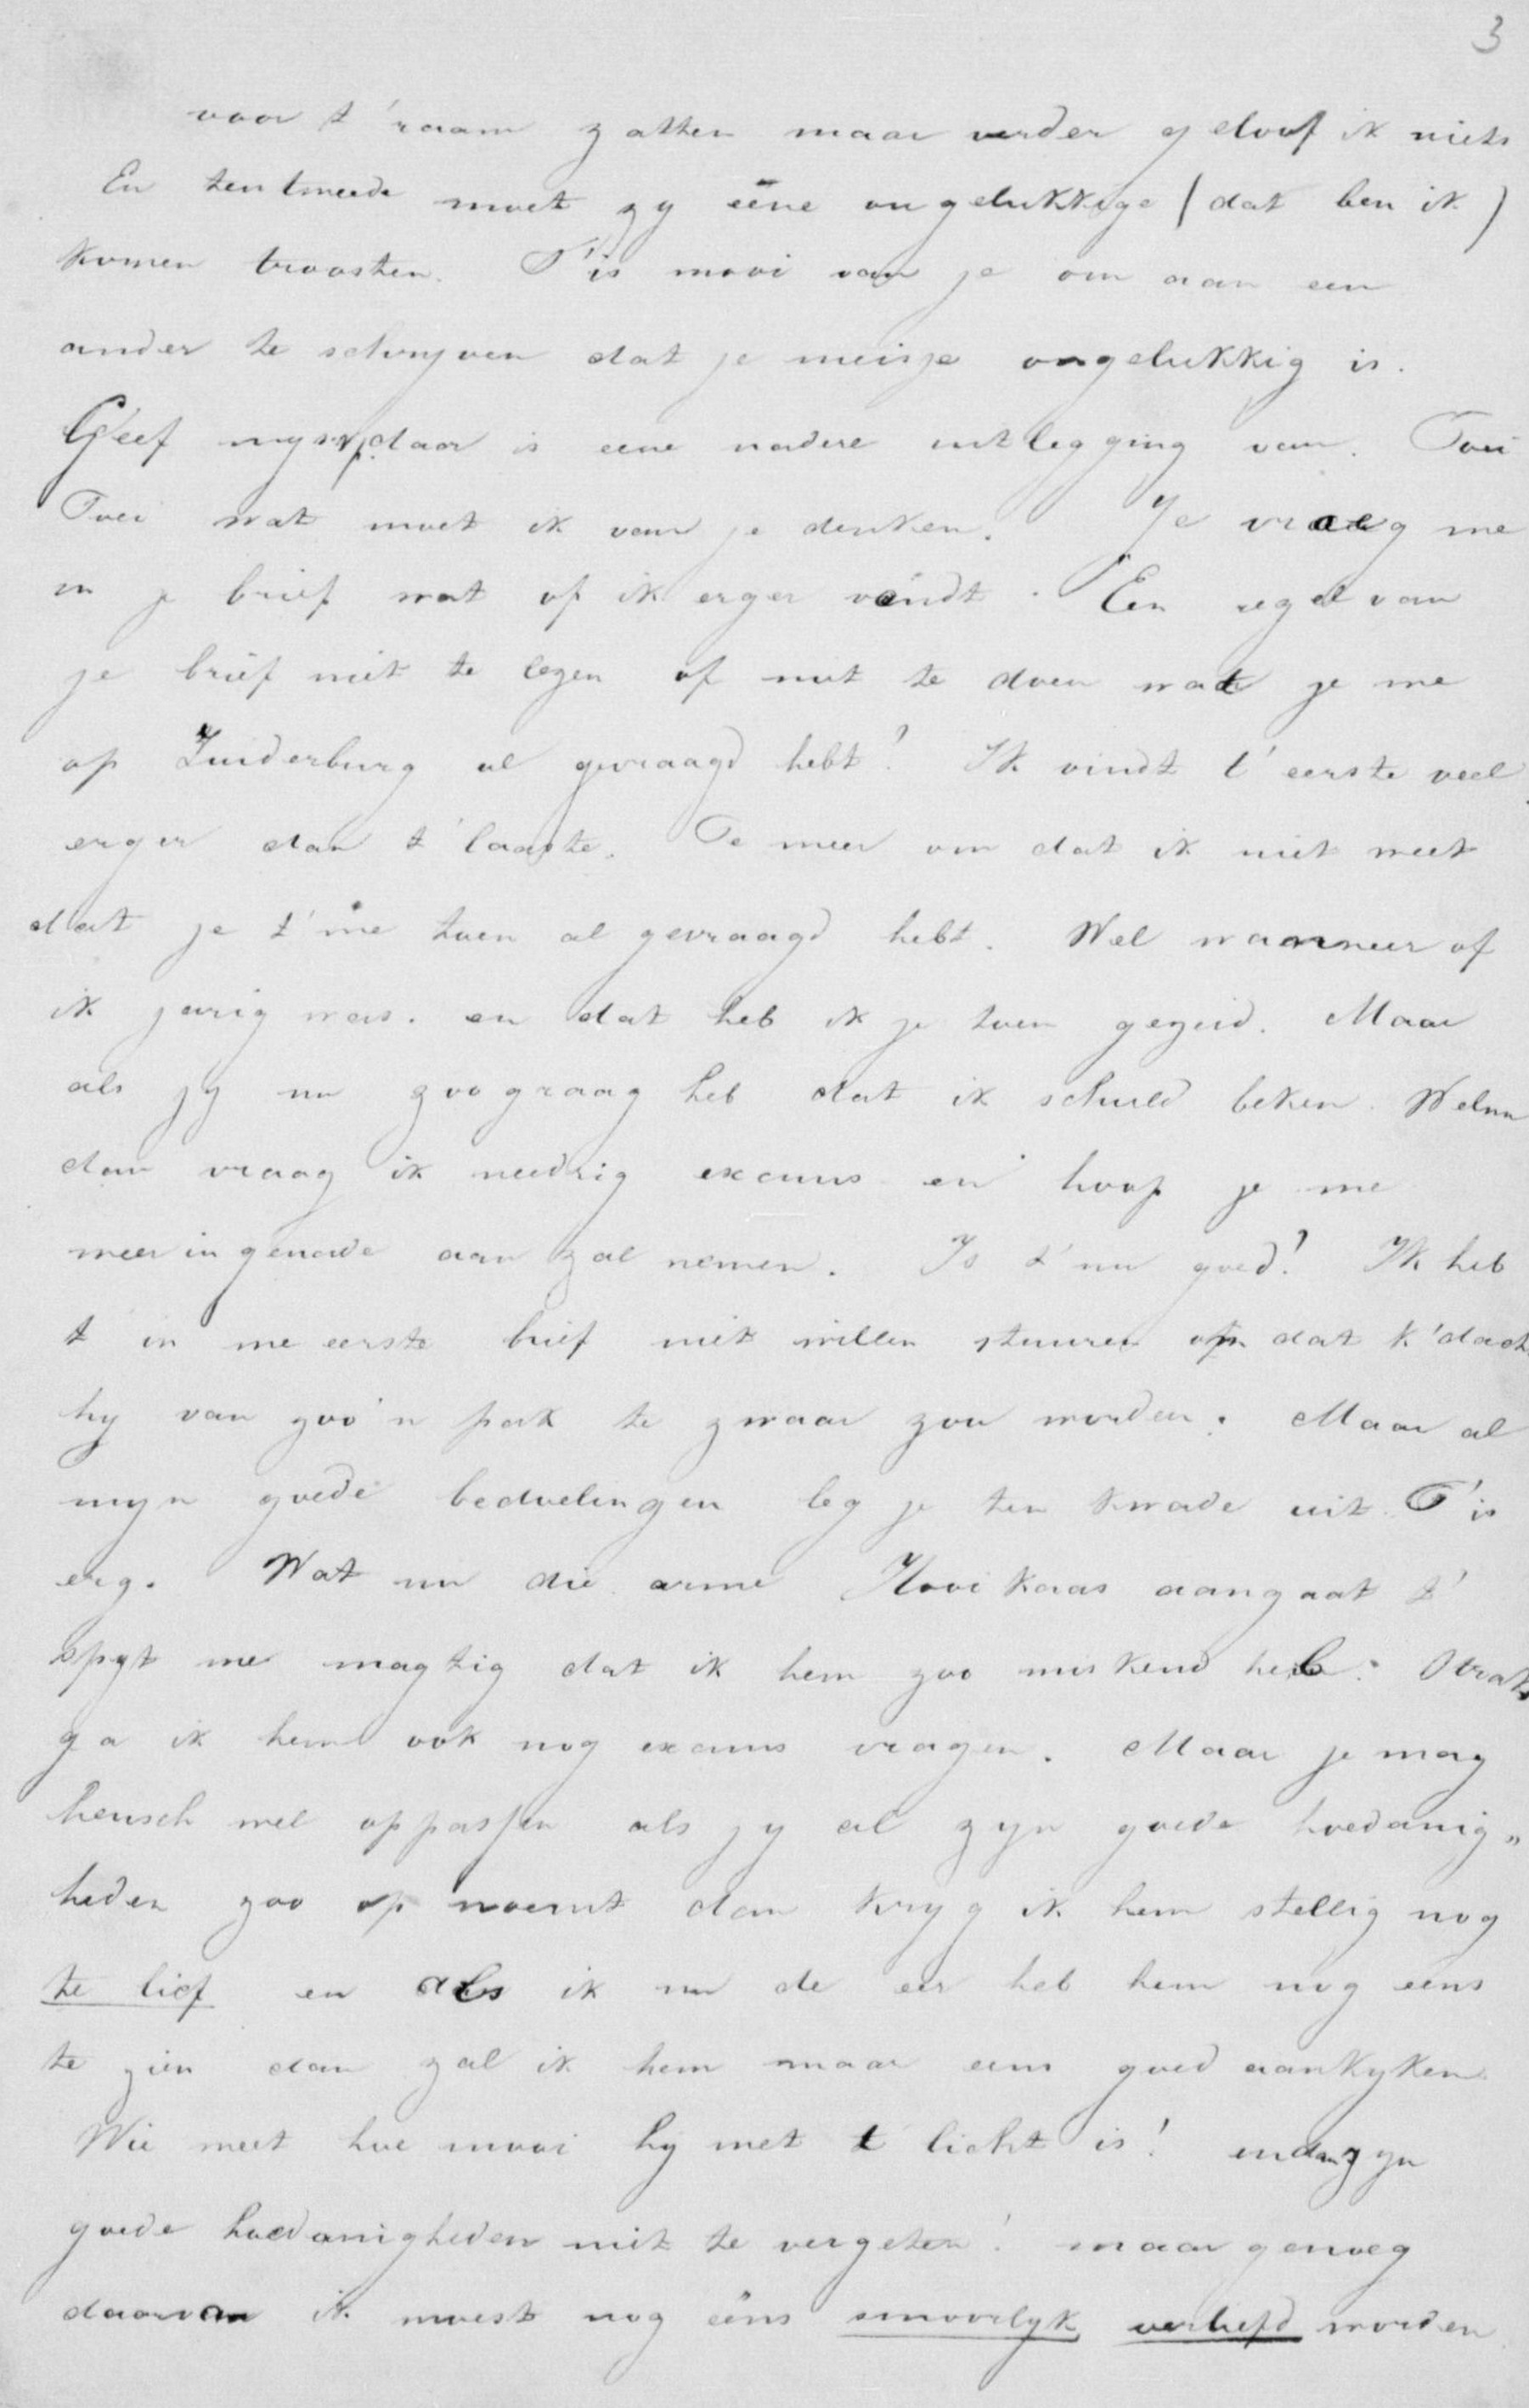 3
voor t'raam zatten maar verder geloof ik niets
En ten tweede moet zy eene ongelukkige (dat ben ik)
komen troosten. T'is mooi van je om aan een
ander te schryven dat je meisje ongelukkig is.
Geef mys.v.p. daar is eene nadere uitlegging van. Foei
Foei wat moet ik van je denken. Je vraag me
in je brief wat of ik erger vindt. Een regel van
je brief niet te lezen of niet te doen wat je me
op Zuiderburg al gevraagd hebt? Ik vindt t'eerste veel
erger dan t'laatste. Te meer om dat ik niet weet
dat je t'me toen al gevraagd hebt. Wel wanneer of
ik jarig was. en dat heb ik je toen gezeid. Maar
als jy nu zoo graag heb dat ik schuld beken. Welnu
dan vraag ik needrig excuus en hoop je me
weer in genade aan zal nemen. Is t'nu goed? Ik heb
t in me eerste brief niet willen sturen om dat k'dacht
hy van zoo'n pak te zwaar zou worden. Maar al
myn goede bedoelingen leg je ten kwade uit. T'is
erg. Wat nu die arme Hooikaas aangaat t'
spyt me magtig dat ik hem zoo miskend heb. Straks
ga ik hem ook nog excuus vragen. Maar je mag
heusch wel oppassen als jy al zyn goede hoedanig„
heden zoo op noemt dan kryg ik hem stellig nog
te lief en als ik nu de eer heb hem nog eens
te zien dan zal ik hem maar eens goed aankyken
Wie weet hoe mooi hij met t licht is! en dan zyn
goede hoedanigheden niet te vergeten! maar genoeg
daarvan ik moest nog eens smoorlyk verliefd worden